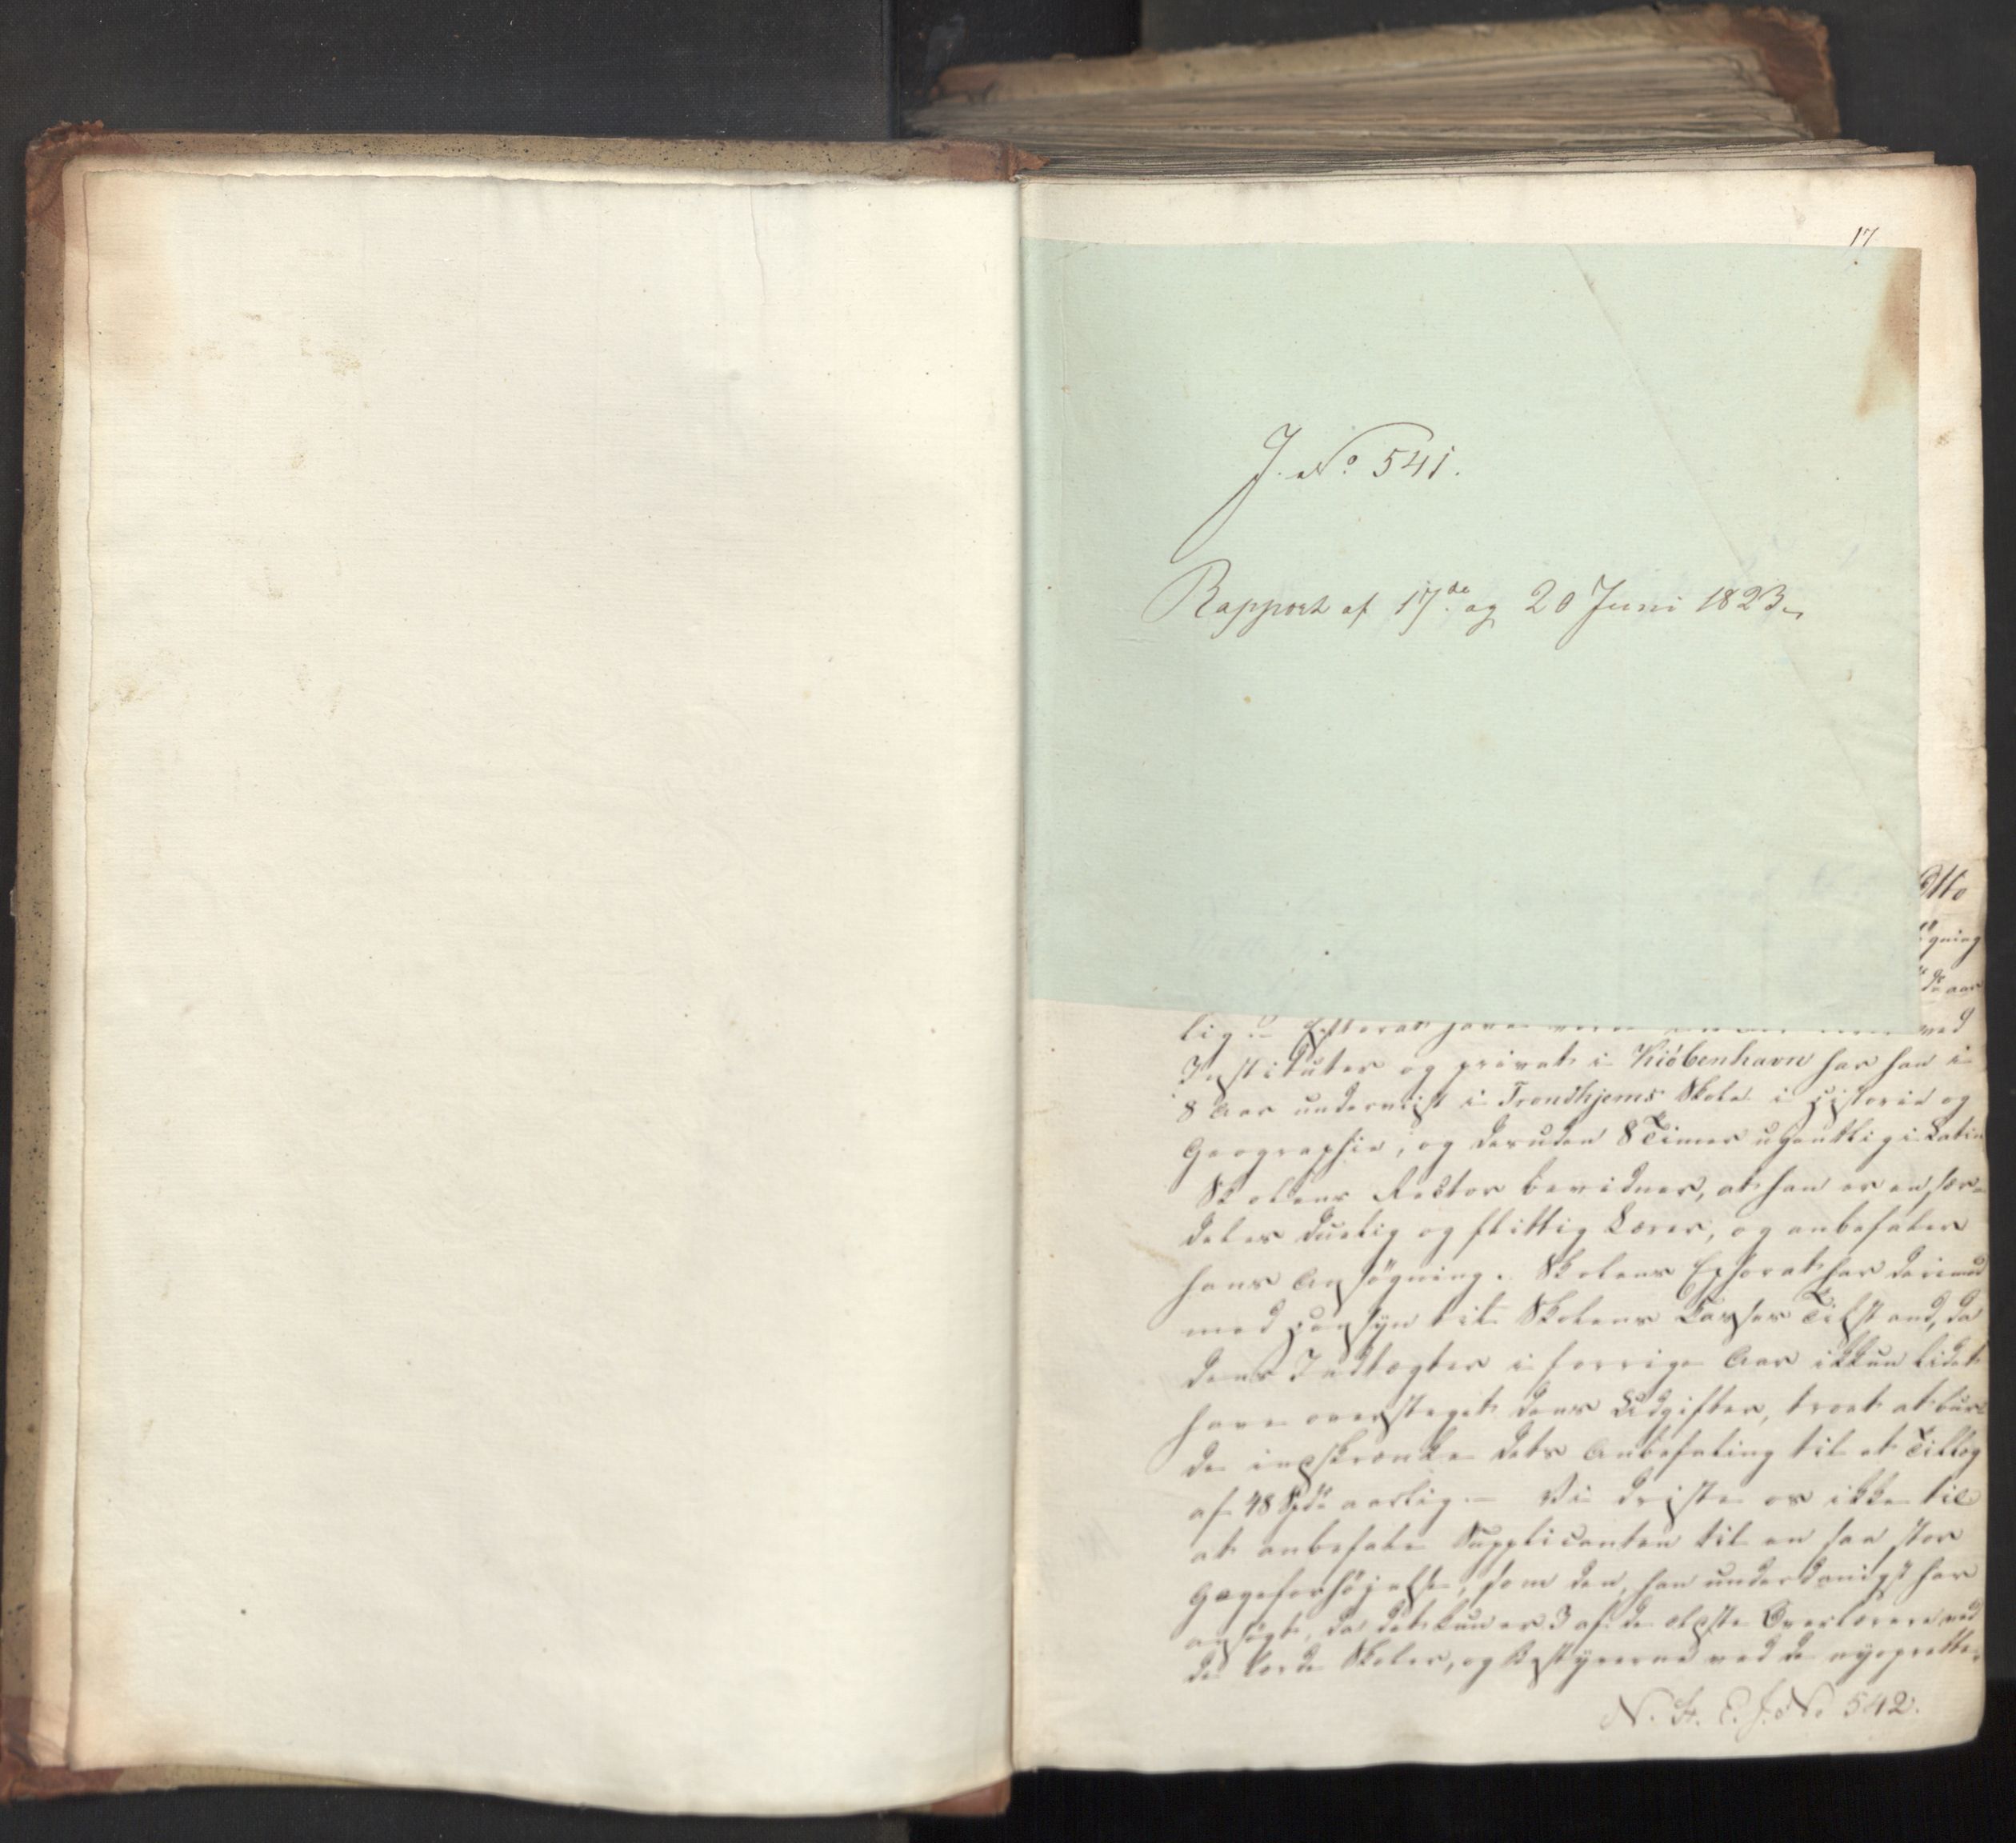 17.
J. No 541.
Rapport af 17de og 20 Juni 1823
Otto
gning
aar
lig
Instituter og privat i Kiöbenhavn har han i
8 Aar underviist i Trondhjems Skole i Historie og
Geographie, og desuden 8 Timer ugentlig i Latin
Skolens Rector bevidner, at han er en sær-
deles duelig og flittig Lærer, og anbefaler
hans Ansögning. Skolens Ephorat har derimod
med Hensyn til Skolens Casses Tilstand, da
dens Indtægter i forrige Aar ikkun lidet
have oversteget dens Udgifter, troet at bur-
de indskrænke dets Anbefaling til et Tillæg
af 48 Spd aarlig. — Vi driste os ikke til
at anbefale Supplicanten til en saa stor
Gageforhöjelse, som den, han underdanigst har
ansögt, da det kun er 3 af de ælste Overlærere ved
de lærde Skoler, og Bestyrerne ved de nyoprette-
N. St. E. J. No 542.